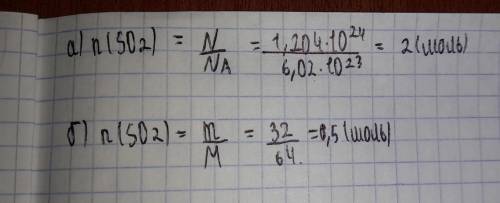 а) n(SO2) = N/NA = 1,204·10²⁴/6,02·10²³ = 2 (моль)
б) n(SO2) = m/M = 32/64. = 0,5 (моль)